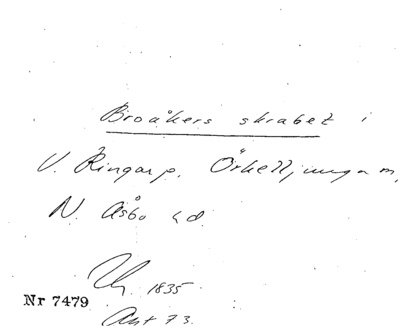 Broåkers skrabet i
V. Ringarp, Örkelljunga m,
N. Åsbo hd.
1835
Nr 7479
Akt 73.